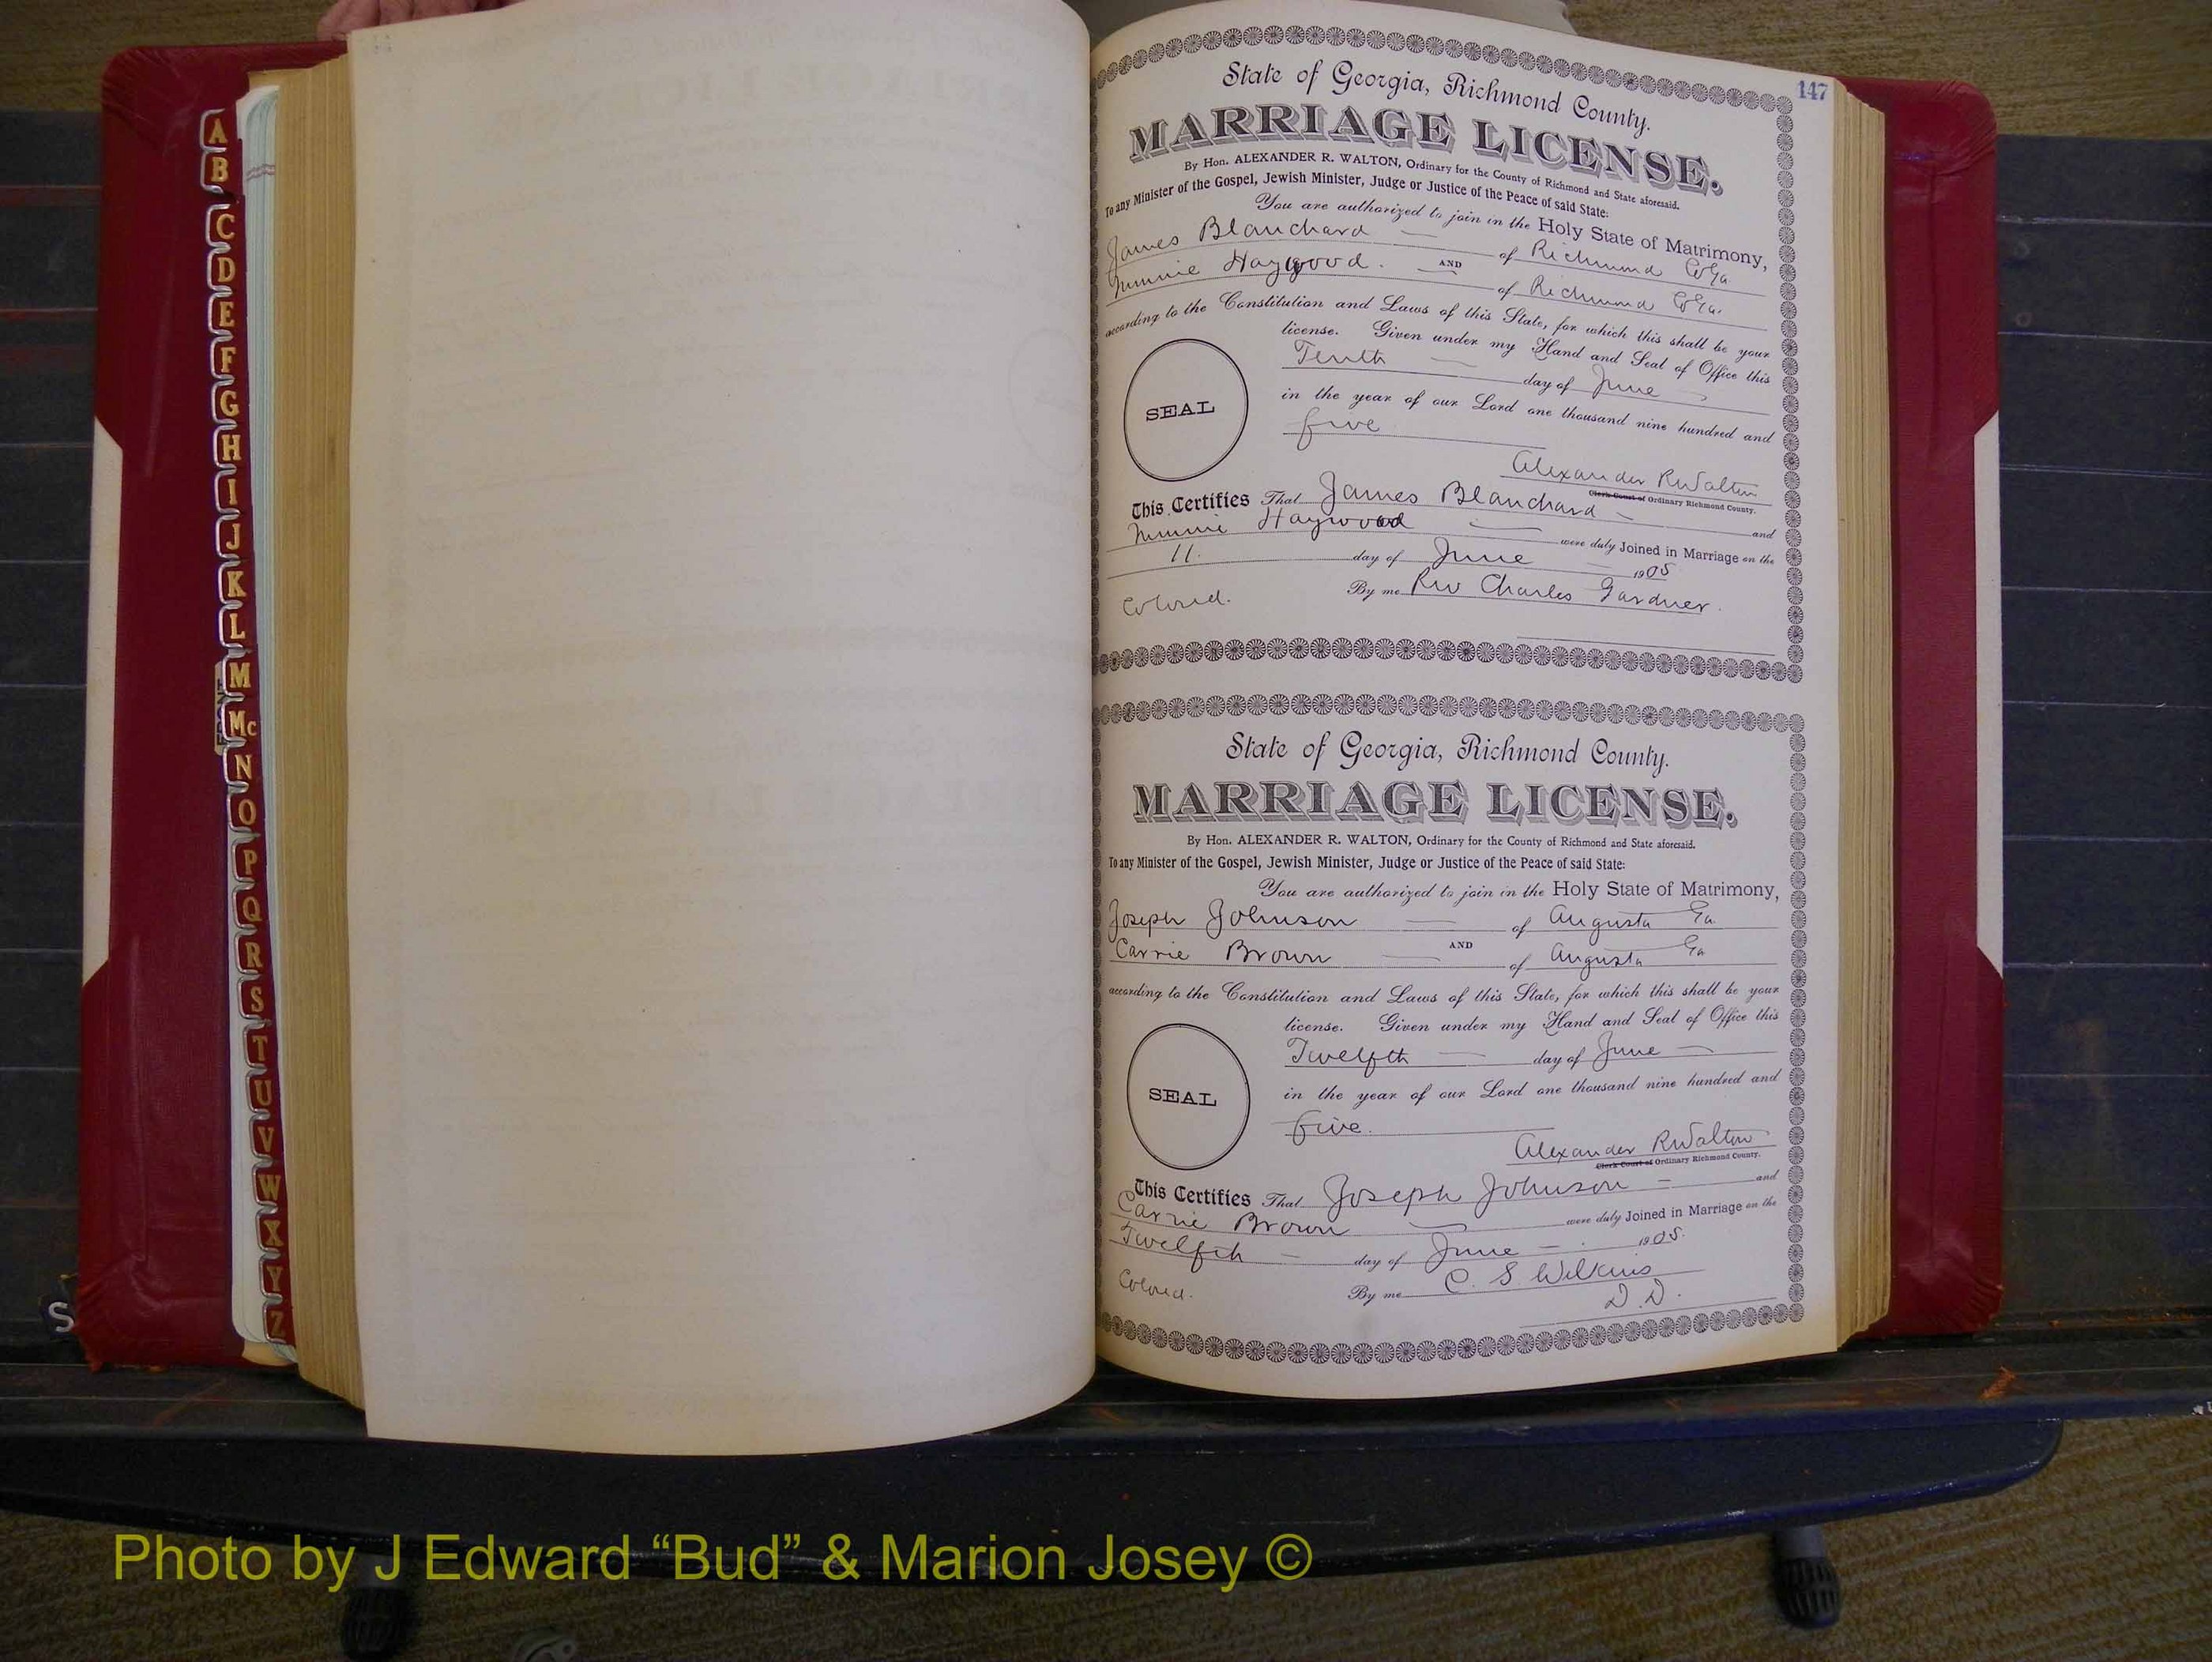 A
B
C
D
E
F
G
H
I
J
K
L
M
Mc
N
O
P
Q
R
S
T
U
V
W
X
Y
Z
S
147
State of Georgia, Richmond County.
MARRIAGE LICENSE.
By Hon. ALEXANDER R. WALTON, Ordinary for the County of Richmond and State aforesaid.
To any Minister of the Gospel, Jewish Minister, Judge or Justice of the Peace of said State:
You are authorized to join in the Holy State of Matrimony,
James Blanchard of Richmond Co Ga.
AND
Minnie Haywood. of Richmond Co Ga.
according to the Constitution and Laws of this State, for which this shall be your
license. Given under my Hand and Seal of Office this
Tenth day of June
in the year of our Lord one thousand nine hundred and
five
SEAL
Alexander R Walton
Clerk Court of Ordinary Richmond County.
This Certifies That James Blanchard and
Minnie Haywood were duly Joined in Marriage on the
11. day of June 1905
By me Rev Charles Gardner.
Colored.
State of Georgia, Richmond County.
MARRIAGE LICENSE.
By Hon. ALEXANDER R. WALTON, Ordinary for the County of Richmond and State aforesaid.
To any Minister of the Gospel, Jewish Minister, Judge or Justice of the Peace of said State:
You are authorized to join in the Holy State of Matrimony,
Joseph Johnson of Augusta Ga.
AND
Carrie Brown of Augusta Ga
according to the Constitution and Laws of this State, for which this shall be your
license. Given under my Hand and Seal of Office this
Twelfth day of June
in the year of our Lord one thousand nine hundred and
five.
SEAL
Alexander R Walton
Clerk Court of Ordinary Richmond County.
This Certifies That Joseph Johnson and
Carrie Brown were duly Joined in Marriage on the
Twelfth day of June 1905.
By me C. S. Wilkins
D.D.
Colored.
Photo by J Edward “Bud” & Marion Josey ©